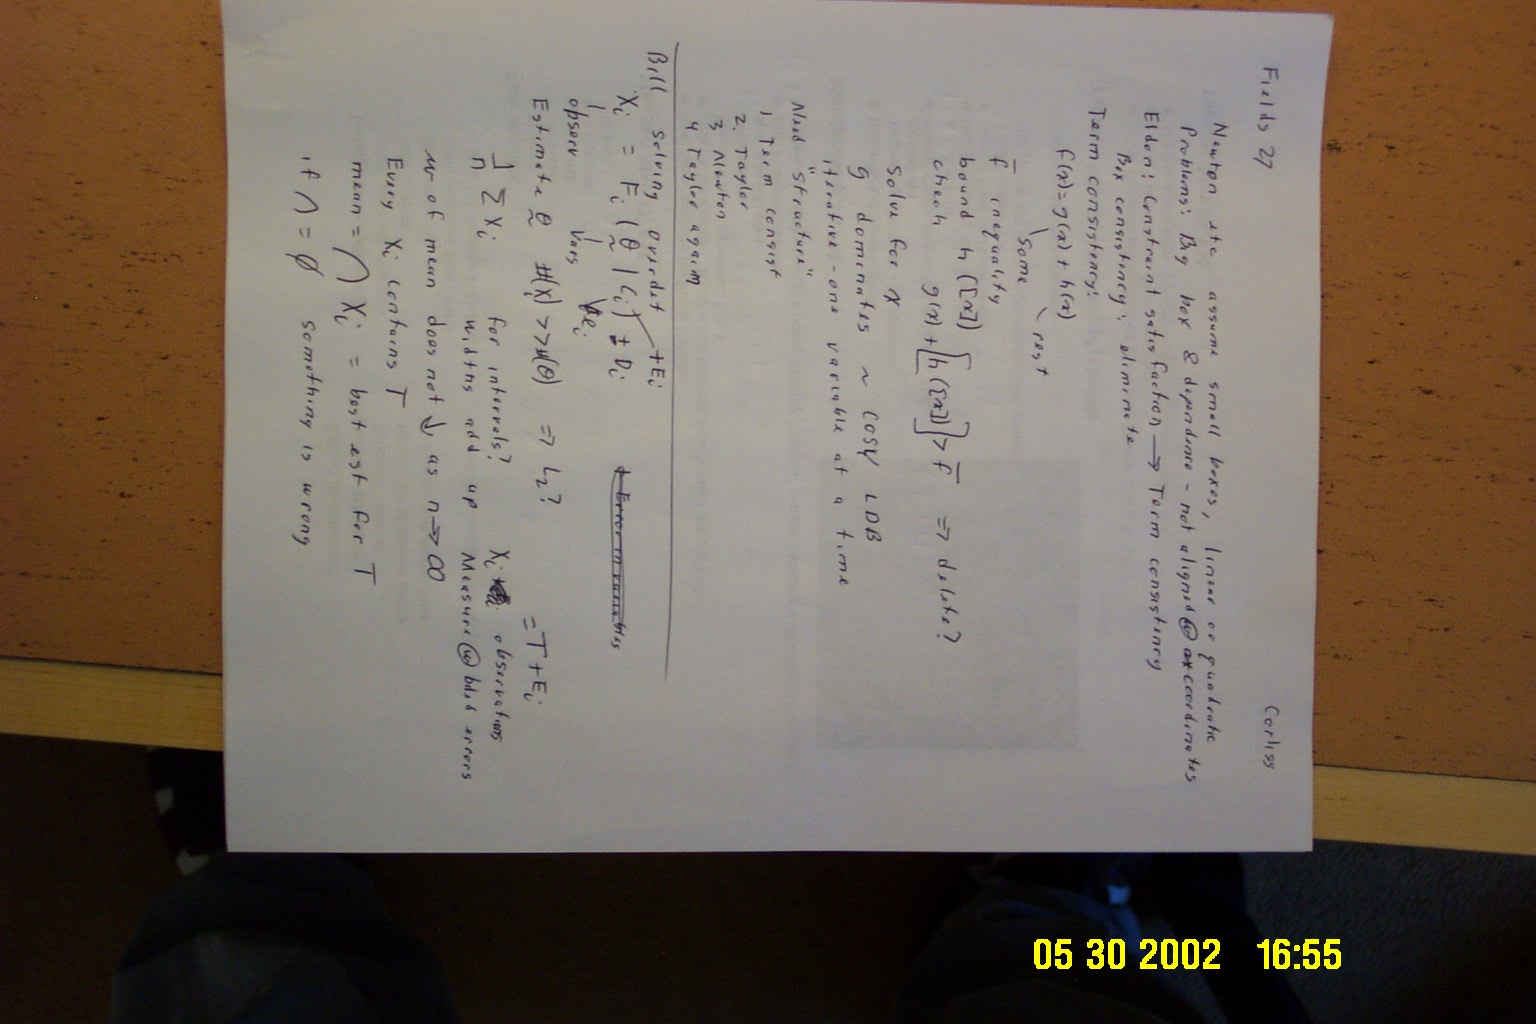 Fields 27 Corliss
Newton etc assume small boxes, linear or quadratic
Problems: Big box & dependence - not aligned @ coordinates
Eldon: Constraint satisfaction → Term consistency
Box consistency: eliminate
Term consistency:
f(x) = g(x) + h(x)
some rest
f̄ inequality
bound h([x])
check g(x) + [h([x])] > f̄ ⇒ delete?
Solve for x
g dominates ~ COSY LDB
iterative - one variable at a time
Need "structure"
1 Term consist
2. Taylor
3 Newton
4 Taylor again
Bill solving overdet
Xi = Fi (θ | Ci) ± Di + Ei
observ vars ei
Error in variables
Estimate θ #(Xi) >> #(θ) ⇒ L2? = T + Ei
1/n Σ Xi for intervals? Xi observations
widths add up Measure @ bdd errors
w of mean does not ↓ as n → ∞
Every Xi contains T
mean = ∩ Xi = best est for T
if ∩ = ∅ something is wrong
05 30 2002 16:55